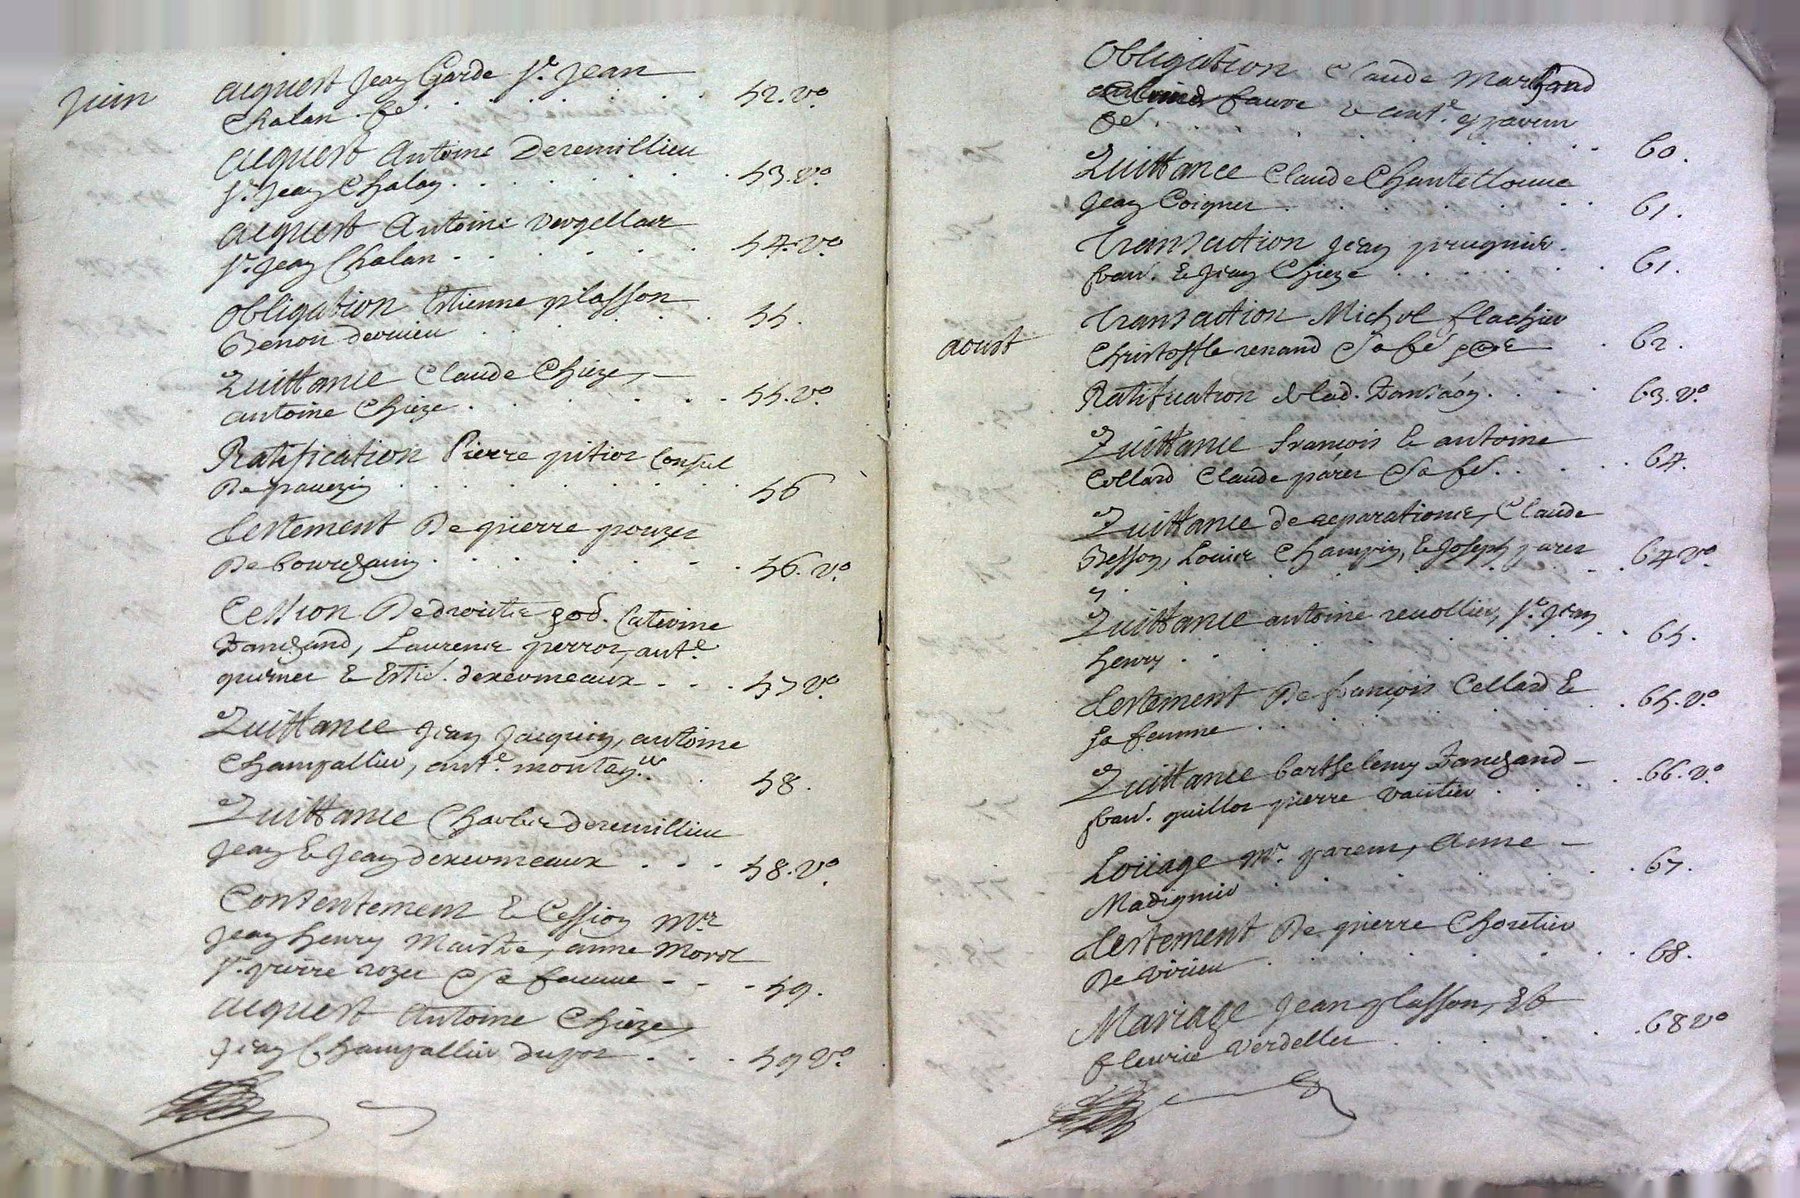 Juin
acquest Jean Garde Sr. Jean
Chalan. fe. . . . . . . . 52. vo.
acquest Antoine Deremillieu
Sr. Jean Chalan . . . . . . 53. vo.
acquest Antoine Vergellau
Sr. Jean Chalan . . . . . . 54. vo.
obligation Estienne plasson
Benoit dervieu . . . . . . 55.
Quittance Claude Chieze,
antoine Chieze . . . . . . 55. vo.
Ratification Pierre pitiot Consul
De pavezin . . . . . . 56
testement De pierre pouzet
De bourchanin . . . . . . 56. vo.
Cession De droits Caterine
Danchand, Laurence perrot, ant.e
guernet & Esti. dexcomeaux . . . 57 vo.
Quittance Jean Jacquin, antoine
Champallier, ant.e montagn.er . . 58.
Quittance Charles deremillieu
Jean & Jean dexcomeaux . . . 58. vo.
Consentement & Cession Mr
Jean henry Maistre, anne Morot
Sr. pierre rozet & Sa femme . . . 59.
acquest Antoine Chieze,
Jean Champallier dupot . . . 59 vo.
Obligation Claude Marchand
faure & ant.e
fe. . . . . . . . 60.
Quittance Claude Chantelloune
Jean Coignet . . . . . . 61.
Transaction Jean prugnier.
fran. & Jean Chieze . . . . . . 61.
aoust
Transaction Michel flachier
Christoffle renaud & Sa fe . 62.
Ratification . . . . 63. vo.
Quittance francois & antoine
Collard Claude paret & Sa fe. . . . . 64.
Quittance de reparations, Claude
Besson, Louise Champin, & Joseph paret . . 64 vo.
Quittance antoine revollier, Sr. Jean
henry . . . . . . 65.
testement De francois Collard &
sa femme . . . . . . 65. vo.
Quittance barthelemy Danchand
fran. guillot pierre Vautier . . . 66. vo.
Loüage Mr. parent, Anne
Madignier . . . . . . 67.
testement De pierre Choretier
De Virieu . . . . . . 68.
Mariage Jean plasson, &
fleurie Verdellet . . . . . . 68 vo